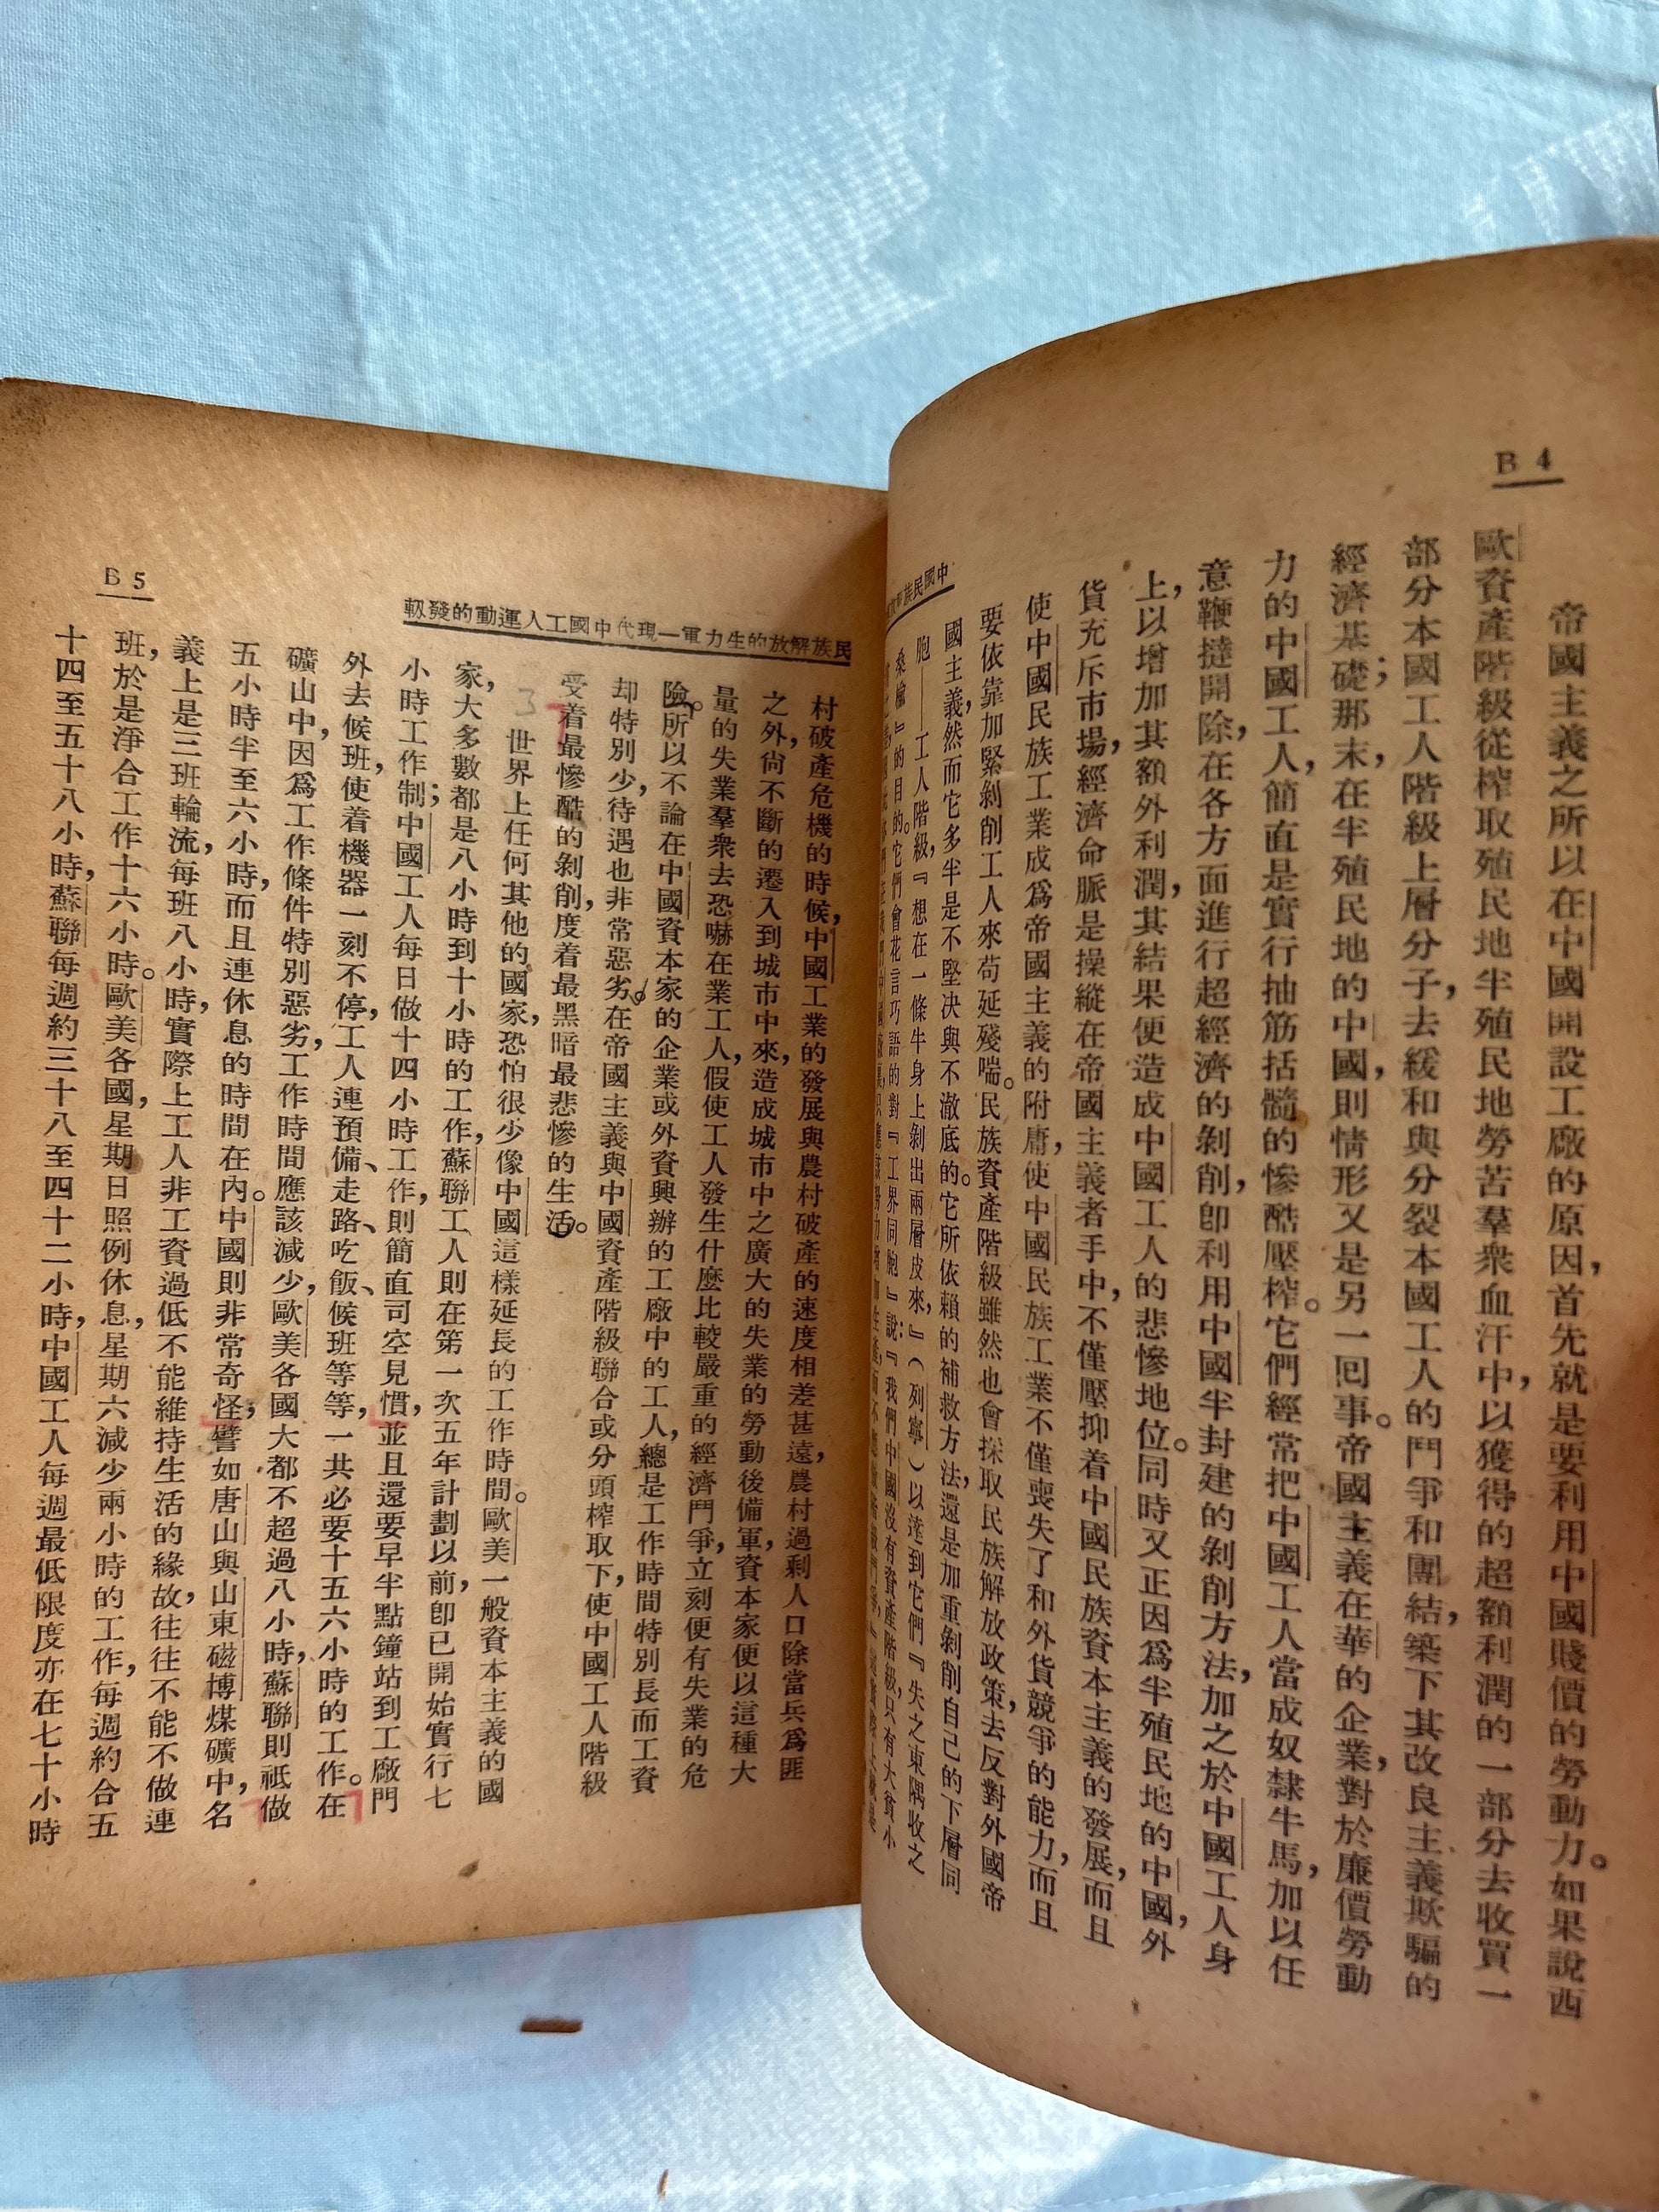 B 4
中國民族
帝國主義之所以在中國開設工廠的原因，首先就是要利用中國賤價的勞動力。如果說西
歐資產階級從榨取殖民地半殖民地勞苦羣衆血汗中，以獲得的超額利潤的一部分去收買一
部分本國工人階級上層分子，去緩和與分裂本國工人的鬥爭和團結，築下其改良主義欺騙的
經濟基礎；那末，在半殖民地的中國，則情形又是另一回事。帝國主義在華的企業，對於廉價勞動
力的中國工人，簡直是實行抽筋括髓的慘酷壓榨。它們經常把中國工人當成奴隸牛馬，加以任
意鞭撻開除，在各方面進行超經濟的剝削，卽利用中國半封建的剝削方法，加之於中國工人身
上，以增加其額外利潤，其結果便造成中國工人的悲慘地位。同時又正因爲半殖民地的中國，外
貨充斥市場，經濟命脈是操縱在帝國主義者手中，不僅壓抑着中國民族資本主義的發展，而且
使中國民族工業成爲帝國主義的附庸，使中國民族工業不僅喪失了和外貨競爭的能力，而且
要依靠加緊剝削工人來苟延殘喘。民族資產階級雖然也會採取民族解放政策，去反對外國帝
國主義，然而它多半是不堅决與不澈底的。它所依賴的補救方法，還是加重剝削自己的下層同
胞——工人階級，『想在一條牛身上剝出兩層皮來，』（列寧）以達到它們『失之東隅收之
桑榆』的目的。它們會花言巧語的對『工界同胞』說：『我們中國沒有資產階級，只有大貧小
B 5
民族解放的生力軍—現代中國工人運動的發軔
村破產危機的時候，中國工業的發展與農村破產的速度相差甚遠，農村過剩人口除當兵爲匪
之外，尙不斷的遷入到城市中來，造成城市中之廣大的失業的勞動後備軍，資本家便以這種大
量的失業羣衆去恐嚇在業工人，假使工人發生什麼比較嚴重的經濟鬥爭，立刻便有失業的危
險。所以不論在中國資本家的企業或外資興辦的工廠中的工人，總是工作時間特別長而工資
却特別少，待遇也非常惡劣。在帝國主義與中國資產階級聯合或分頭榨取下，使中國工人階級
受着最慘酷的剝削，度着最黑暗最悲慘的生活。
3
世界上任何其他的國家，恐怕很少像中國這樣延長的工作時間。歐美一般資本主義的國
家，大多數都是八小時到十小時的工作，蘇聯工人則在第一次五年計劃以前，卽已開始實行七
小時工作制；中國工人每日做十四小時工作，則簡直司空見慣，並且還要早半點鐘站到工廠門
外去候班，使着機器一刻不停，工人連預備、走路、吃飯、候班等等，一共必要十五六小時的工作。在
礦山中，因爲工作條件特別惡劣，工作時間應該減少，歐美各國大都不超過八小時，蘇聯則祇做
五小時半至六小時，而且連休息的時間在內。中國則非常奇怪；譬如唐山與山東磁博煤礦中，名
義上是三班輪流，每班八小時，實際上工人非工資過低不能維持生活的緣故，往往不能不做連
班，於是淨合工作十六小時。歐美各國，星期日照例休息，星期六減少兩小時的工作，每週約合五
十四至五十八小時，蘇聯每週約三十八至四十二小時，中國工人每週最低限度亦在七十小時